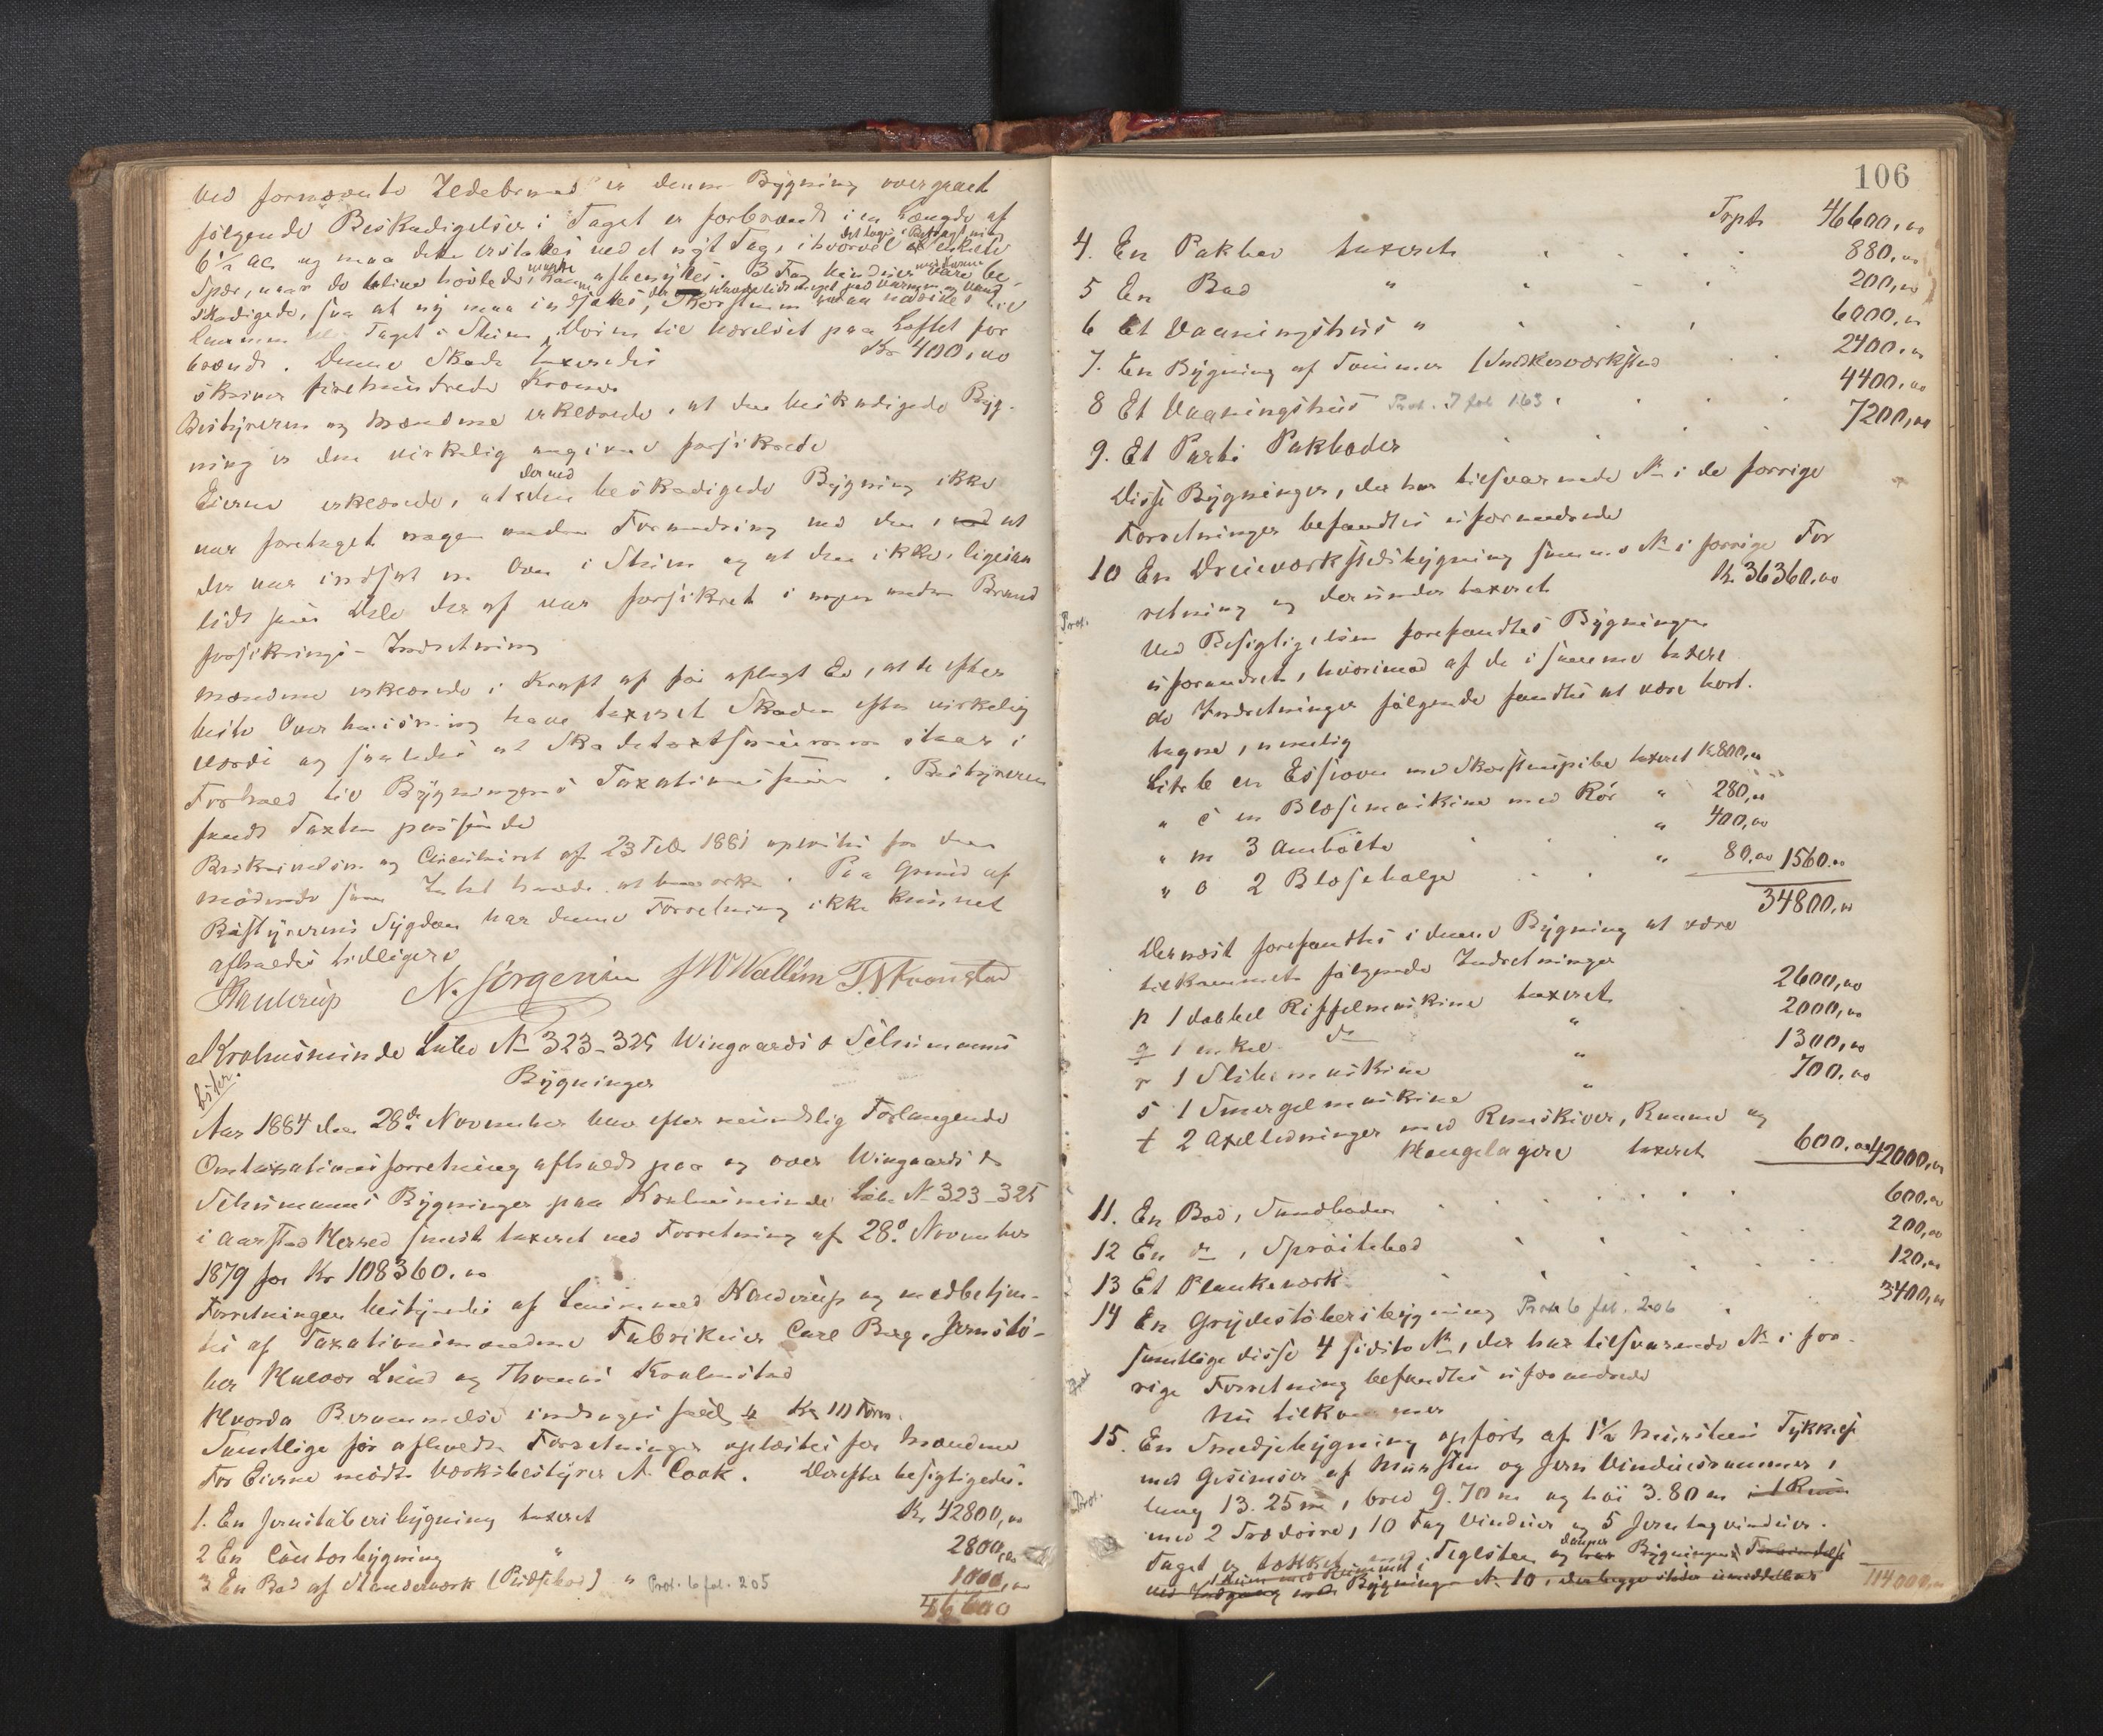 ved fornævnte Ildebrand er denne Bygning overgaaet
følgende Beskadigelser i Taget er forbrændt i en Længde af
6 1/2 Al og maa dette erstattes ved et nyt Tag, i hvorvel enkelte
Spær, naar de blive høvlede, kan afbenyttes. 3 Fag Vinduer ere be-
skadigede, saa at ny maa indsættes,
Taget i Stuen Døren til Værelset paa Loftet for
brændt. Denne Skade taxeredes Kr 400,00
skriver firehundrede Kroner
Bestyreren og Mændene erklærede, at den beskadigede Byg-
ning er den virkelig angivne forsikrede
Eierne erklærede, at den derved beskadigede Bygning ikke
var foretaget nogen anden Forandring ved den, end at
der var indsat en Ovn i Stuen og at den ikke, ligesaa
lidt som Dele deraf var forsikret i nogen anden Brand
forsikrings-Indretning
Mændene erklærede i Kraft af før aflagt Ed, at de efter
bedste Overbeviisning have taxeret Skaden efter virkelig
Værdi og saaledes at Skadetaxtsummen staar i
Forhold til Bygningens Taxationssum. Bestyreren
fandt Taxten passende
Beskrivelsen og Circulæret af 23 Febr 1881 oplæstes for den
mødende som Intet havde at bemærke. Paa Grund af
Bestyrerens Sygdom har denne Forretning ikke kunnet
afholdes tidligere
N. Jørgensen J W Wallem T. Kronstad
Krohnsminde Litra No 323-325 Wingaards & Schumanns
Bygninger
Aar 1884 den 28de November blev efter mundtlig Forlangende
Omtaxationsforretning afholdt paa og over Wingaards &
Schumanns Bygninger paa Krohnsminde Litr. No 323-325
i Aarstad Herred sidst taxeret ved Forretning af 28de November
1879 for Kr 108360.00
Forretningen bestyredes af Lensmand og medbetjen-
tes af Taxationsmændene Fabrikeier Carl Berg, Jernstø-
ber Halvor Lund og Thomas Krohnstad
Hvorda Berammelse indtages
Samtlige før afholdte Forretninger oplæstes for Mændene
For Eierne mødte Værksbestyrer A. Cook. Derefter besigtigedes:
1. En Jernstøberibygning taxeret Kr 42800,00
2 En Contorbygning " 2800,00
3 En Bod af Standerværk (Pudsebod) " Prot. 6 fol. 205 1000,00
46600
106
Trpt 46600,00
4. En Pakbod taxeret 880,00
5 En Bod " 200,00
6 Et Vaaningshus " 6000,00
7. En Bygning af Tømmer (Snedkerværksted 2400,00
8 Et Vaaningshus Prot. 7 fol 163 4400,00
9. Et Parti Pakboder 7200,00
Disse Bygninger, der har tilsvarende No i de forrige
Forretninger befandtes uforandrede
10 En Dreieværkstedsbygning samme No i forrige For
retning og derunder taxeret Kr. 36360,00
Prot.
Ved Besigtigelsen forefandtes Bygningen
uforandret, hvorimod af de i samme taxere
de Indretninger følgende fandtes at være bort-
tagne, nemlig
Litr b en Esseovn med Skorstenspibe taxeret Kr 800,00
" c en Blæsemaskine med Rør " 280,00
" m 3 Ambolte " 400,00
" o 2 Blæsebælge " 80,00 1560.00
34800,00
Dernæst forefandtes i denne Bygning at være
tilkommet følgende Indretninger
p 1 dobbel Riffelmaskine taxeret 2600,00
q 1 enkel do " 2000,00
r 1 Slibemaskine " 1300,00
s 1 Smergelmaskine " 700,00
t 2 Axelledninger med Remskiver, Remme og
Hængelagere taxeret 600.00 42000,00
11. En Bod, Sandboden 600,00
12 En do, Sprøitebod 200,00
13 Et Plankeværk 120,00
14 En Grydestøberibygning Prot 6 fol. 206 3400,00
samtlige disse 4 sidste No, der har tilsvarende No i for-
rige Forretning befandtes uforandrede
Nu tilkommer
15. En Smedjebygning opført af 1 1/2 Mursteens Tykkelse
med Gesimser af Mursten og Jern Vinduesrammer,
Prot.
lang 13.25 m, bred 9.70 m og høi 3.80 m i 1 Rum
med 2 Trædøre, 10 Fag Vinduer og 5 Jerntagvinduer.
Taget er tækket med Teglsten og danner Bygningens Forbindelse
ved Indgang med Bygningen No 10, der begge støder umiddelbar
114000,00